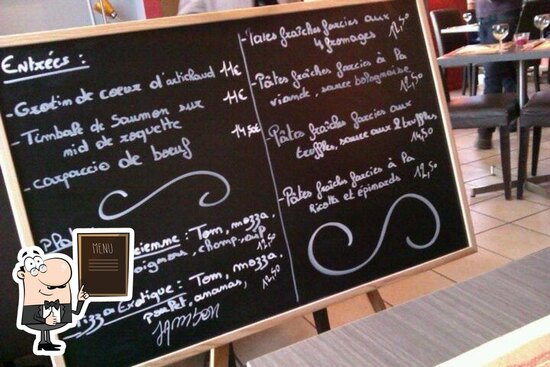 Entrées :
- Gratin de coeur d'artichaud 11€
- Timbale de Saumon sur 11€
nid de roquette
- carpaccio de boeuf 14,50€
Pizza Exotique : Tom, mozza,
poulet, ananas, 12,50
Jambon
ienne : Tom, mozza.
oignons, champ, 12,50
- Pates fraîches farcies aux
4 fromages 12,50
- Pâtes fraîches farcies à la
viande, sauce bolognaise 12,50
- Pâtes fraîches farcies aux
truffes, sauce aux 2 truffes 14,50
- Pâtes fraîches farcies à la
Ricotta et épinards 12,50
MENU